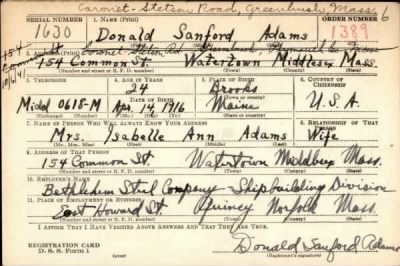 Coronet-Stetson Road, Greenbush, Mass.
SERIAL NUMBER 1. NAME (Print) ORDER NUMBER
1630 Donald Sanford Adams 1389
(First) (Middle) (Last)
2. ADDRESS (Print)
154 Common St. Watertown Middlesex Mass.
(Number and street or R. F. D. number) (Town) (County) (State)
3. TELEPHONE 4. AGE IN YEARS 5. PLACE OF BIRTH 6. COUNTRY OF CITIZENSHIP
24 Brooks
Midd 0618-M Apr. 14 1916 Maine U.S.A.
7. NAME OF PERSON WHO WILL ALWAYS KNOW YOUR ADDRESS 8. RELATIONSHIP OF THAT PERSON
Mrs. Isabelle Ann Adams Wife
(Mr., Mrs., Miss) (First) (Middle) (Last)
9. ADDRESS OF THAT PERSON
154 Common St. Watertown Middlesex Mass.
(Number and street or R. F. D. number) (Town) (County) (State)
10. EMPLOYER'S NAME
Bethlehem Steel Company - Shipbuilding Division
11. PLACE OF EMPLOYMENT OR BUSINESS
East Howard St. Quincy Norfolk Mass.
(Number and street or R. F. D. number) (Town) (County) (State)
I AFFIRM THAT I HAVE VERIFIED ABOVE ANSWERS AND THAT THEY ARE TRUE.
REGISTRATION CARD
D. S. S. FORM 1
Donald Sanford Adams
(Registrant's signature)